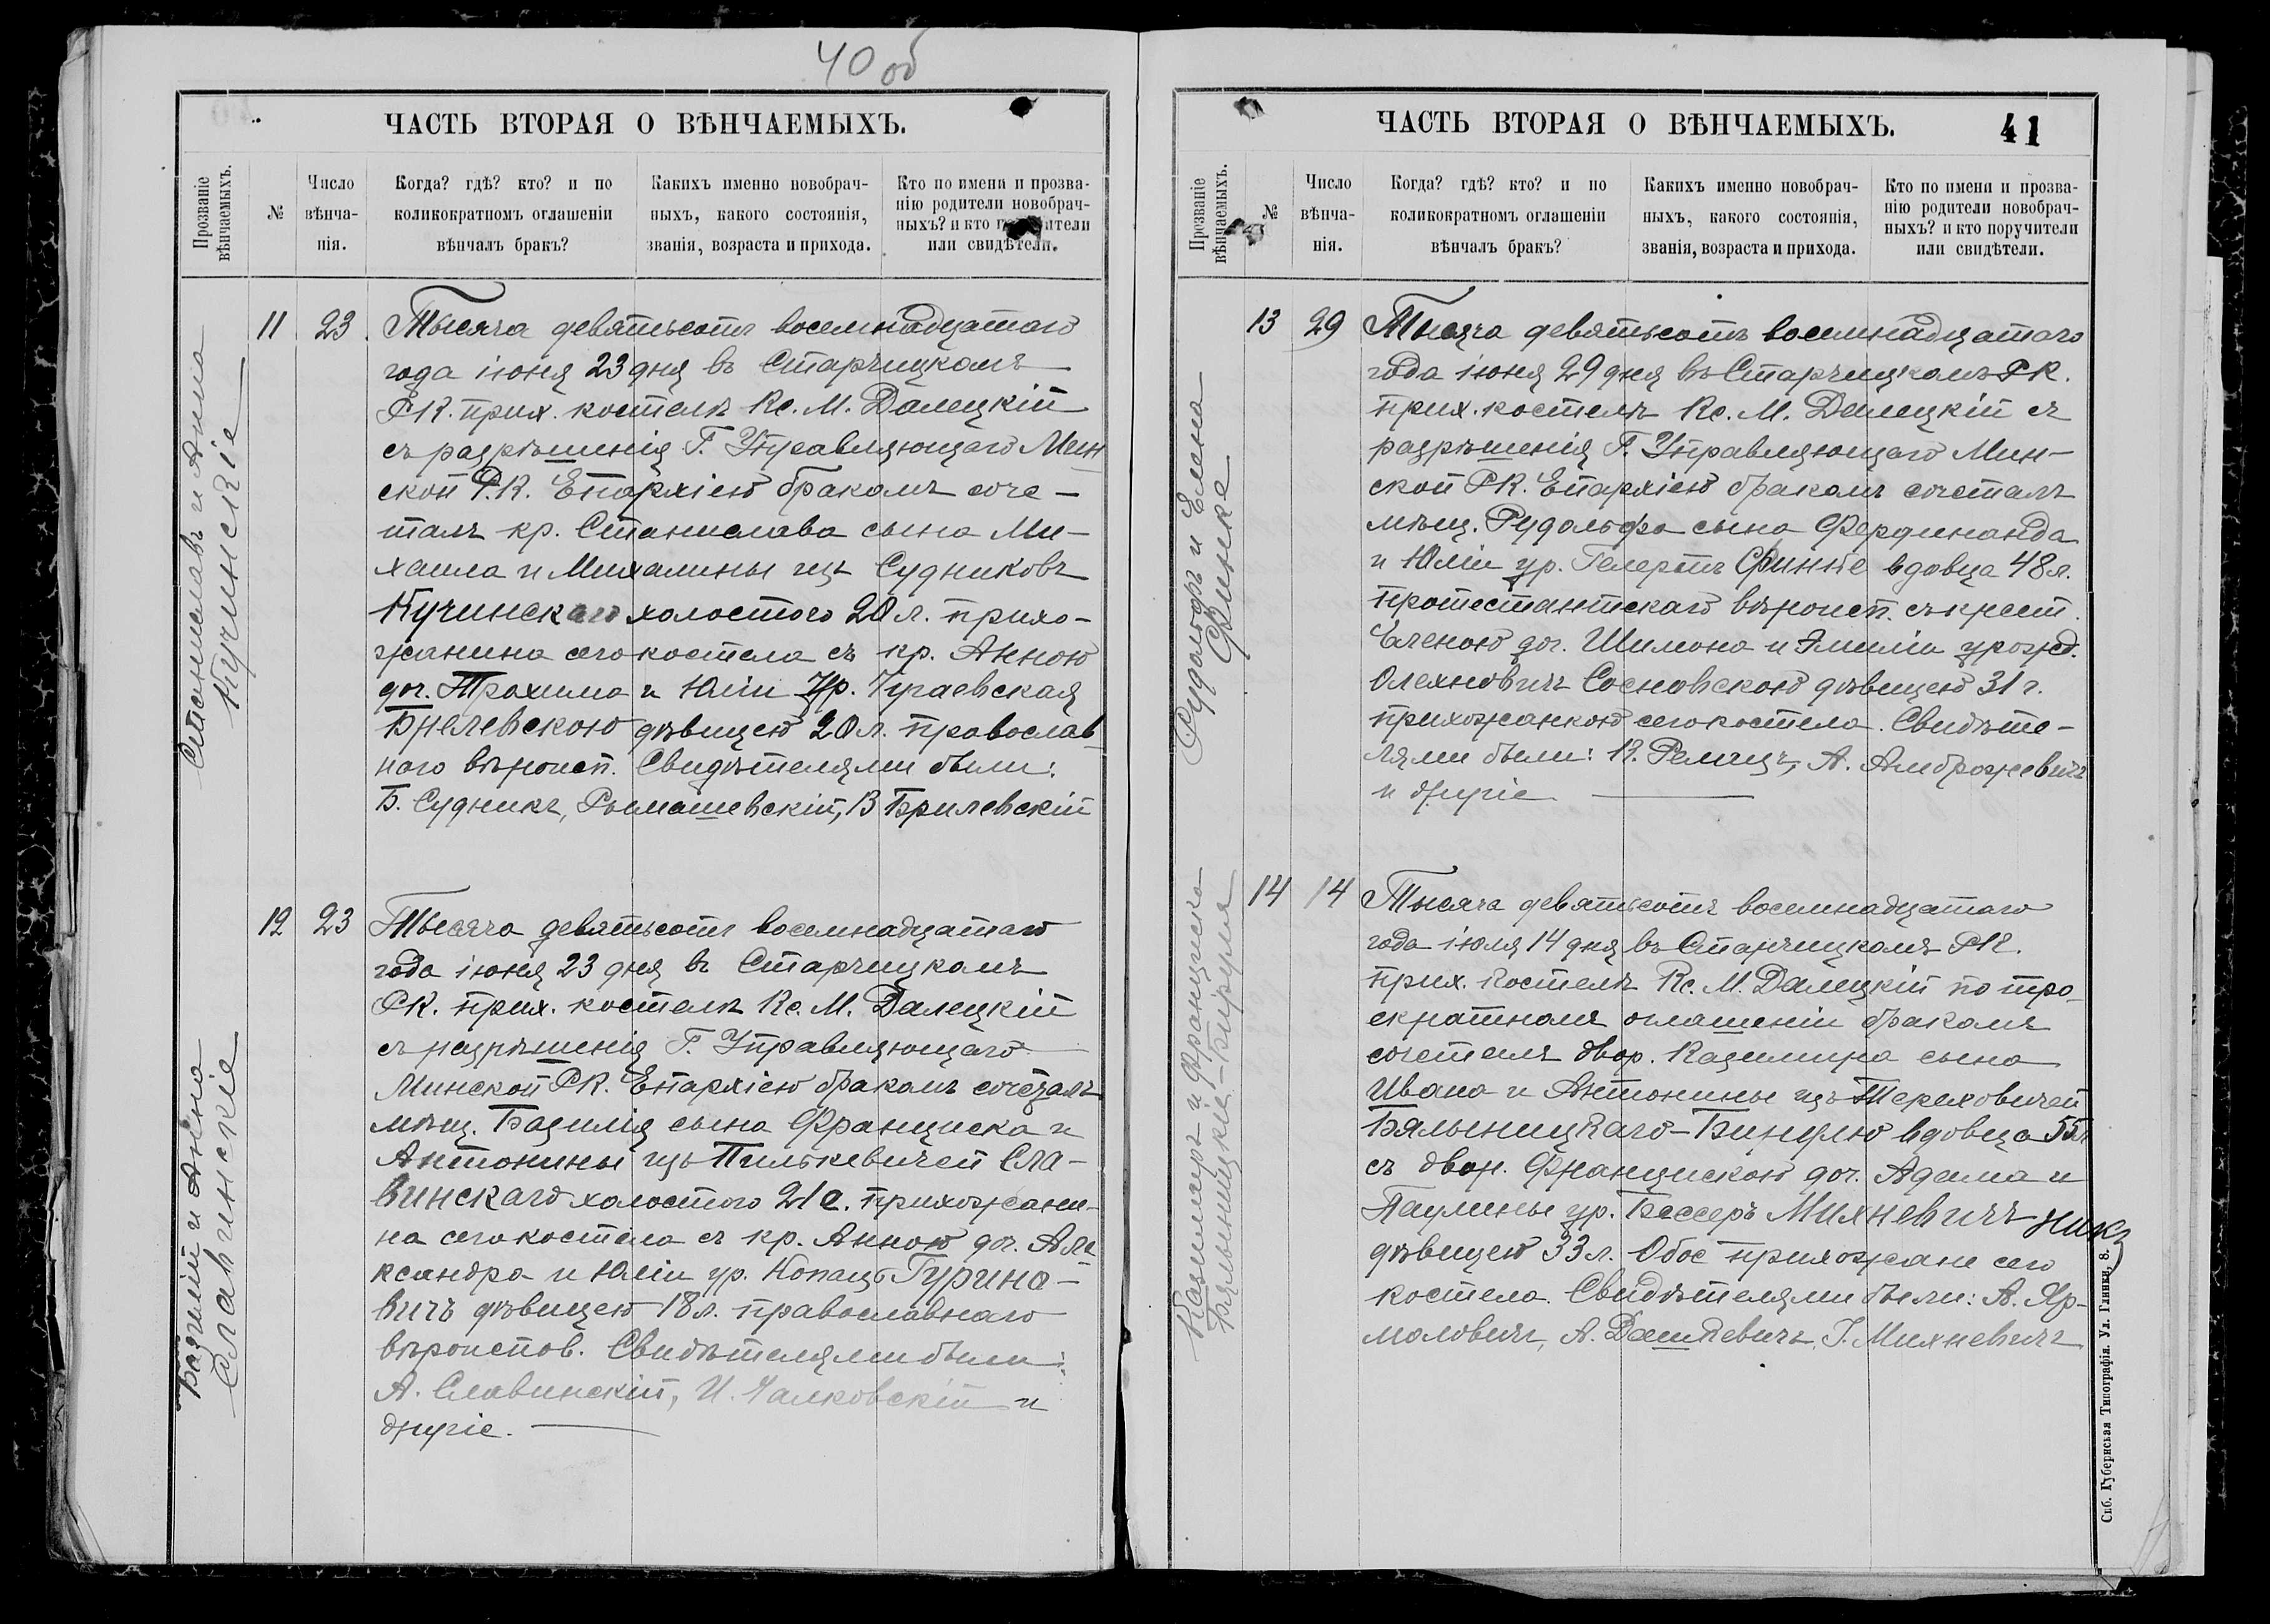 40 об
ЧАСТЬ ВТОРАЯ О ВѢНЧАЕМЫХЪ.
Прозваніе вѣнчаемыхъ.
№
Число вѣнча-нія.
Когда? гдѣ? кто? и по
коликократномъ оглашеніи
вѣнчалъ бракъ?
Какихъ именно новобрач-
ныхъ, какого состоянія,
званія, возраста и прихода.
Кто по имени и прозва-
нію родители новобрач-
ныхъ? и кто поручители
или свидѣтели.
Станиславъ и Анна
Кучинскіе
11 23 Тысяча девятьсотъ восемнадцатаго
года іюня 23 дня въ Старчицкомъ
РК. прих. костелѣ Кс. М. Далецкій
съ разрѣшенія Г. Управляющаго Мин
ской Р.К. Епархіею бракомъ соче-
талъ кр. Станислава сына Ми-
хаила и Михалины изъ Судниковъ
Кучинскаго холостого 20 л. прихо-
жанина сего костела съ кр. Анною
доч. Трохима и Юліи Ур. Чугаевская
Брилевскою дѣвицею 20 л. православ
наго вѣроисп. Свидѣтелями были:
Б. Судникъ, Рымашевскій, В Брилевскій
Базилій и Анна
Славинскіе
12 23 Тысяча девятьсотъ восемнадцатаго
года іюня 23 дня въ Старчицкомъ
РК. прих. костелѣ Кс. М. Далецкій
съ разрѣшенія Г. Управляющаго
Минской РК. Епархіею бракомъ сочеталъ
мѣщ. Базилія сына Франциска и
Антонины изъ Пилькевичей Сла-
винскаго холостого 21 г. прихожани-
на сего костела съ кр. Анною доч. Але
ксандра и Юліи ур. Копацъ Гурино-
вичъ дѣвицею 18 л. православнаго
вѣроиспов. Свидѣтелями были:
А. Славинскій, И. Чалковскій и
другіе.
ЧАСТЬ ВТОРАЯ О ВѢНЧАЕМЫХЪ.
41
Прозваніе вѣнчаемыхъ.
№
Число вѣнча-нія.
Когда? гдѣ? кто? и по
коликократномъ оглашеніи
вѣнчалъ бракъ?
Какихъ именно новобрач-
ныхъ, какого состоянія,
званія, возраста и прихода.
Кто по имени и прозва-
нію родители новобрач-
ныхъ? и кто поручители
или свидѣтели.
Рудольфъ и Елена
Финке
13 29 Тысяча девятьсотъ восемнадцатаго
года іюня 29 дня въ Старчицкомъ РК.
прих. костелѣ Кс. М. Далецкій съ
разрѣшенія Г. Управляющаго Мин-
ской РК. Епархіею бракомъ сочеталъ
мѣщ. Рудольфа сына Фердинанда
и Юліи ур. Гелертъ Финке вдовца 48 л.
протестантскаго вѣроисп. съ крест.
Еленою доч. Шимона и Эмиліи урожд.
Олехновичъ Сосновскою дѣвицею 31 г.
прихожанкою сего костела. Свидѣте-
лями были: К. Ремицъ, А. Амброжевичъ
и другіе
Казимиръ и Франциска
Бялыницкіе-Бируля
14 14 Тысяча девятьсотъ восемнадцатаго
года іюля 14 дня въ Старчицкомъ РК.
прих. Костелѣ Кс. М. Далецкій по тро-
екратномъ оглашеніи бракомъ
сочеталъ двор. Казимира сына
Ивана и Антонины изъ Тереховичей
Бялыницкаго-Бирулю вдовца 55 л
съ двор. Францискою доч. Адама и
Паулины ур. Бессеръ Михневичъ
дѣвицею 33 л. Обое прихожане сего
костела. Свидѣтелями были: А. Яр-
моловичъ, А. Дашкевичъ, І. Михневичъ
Спб. Губернская Типографія. Ул. Глинки, 8.